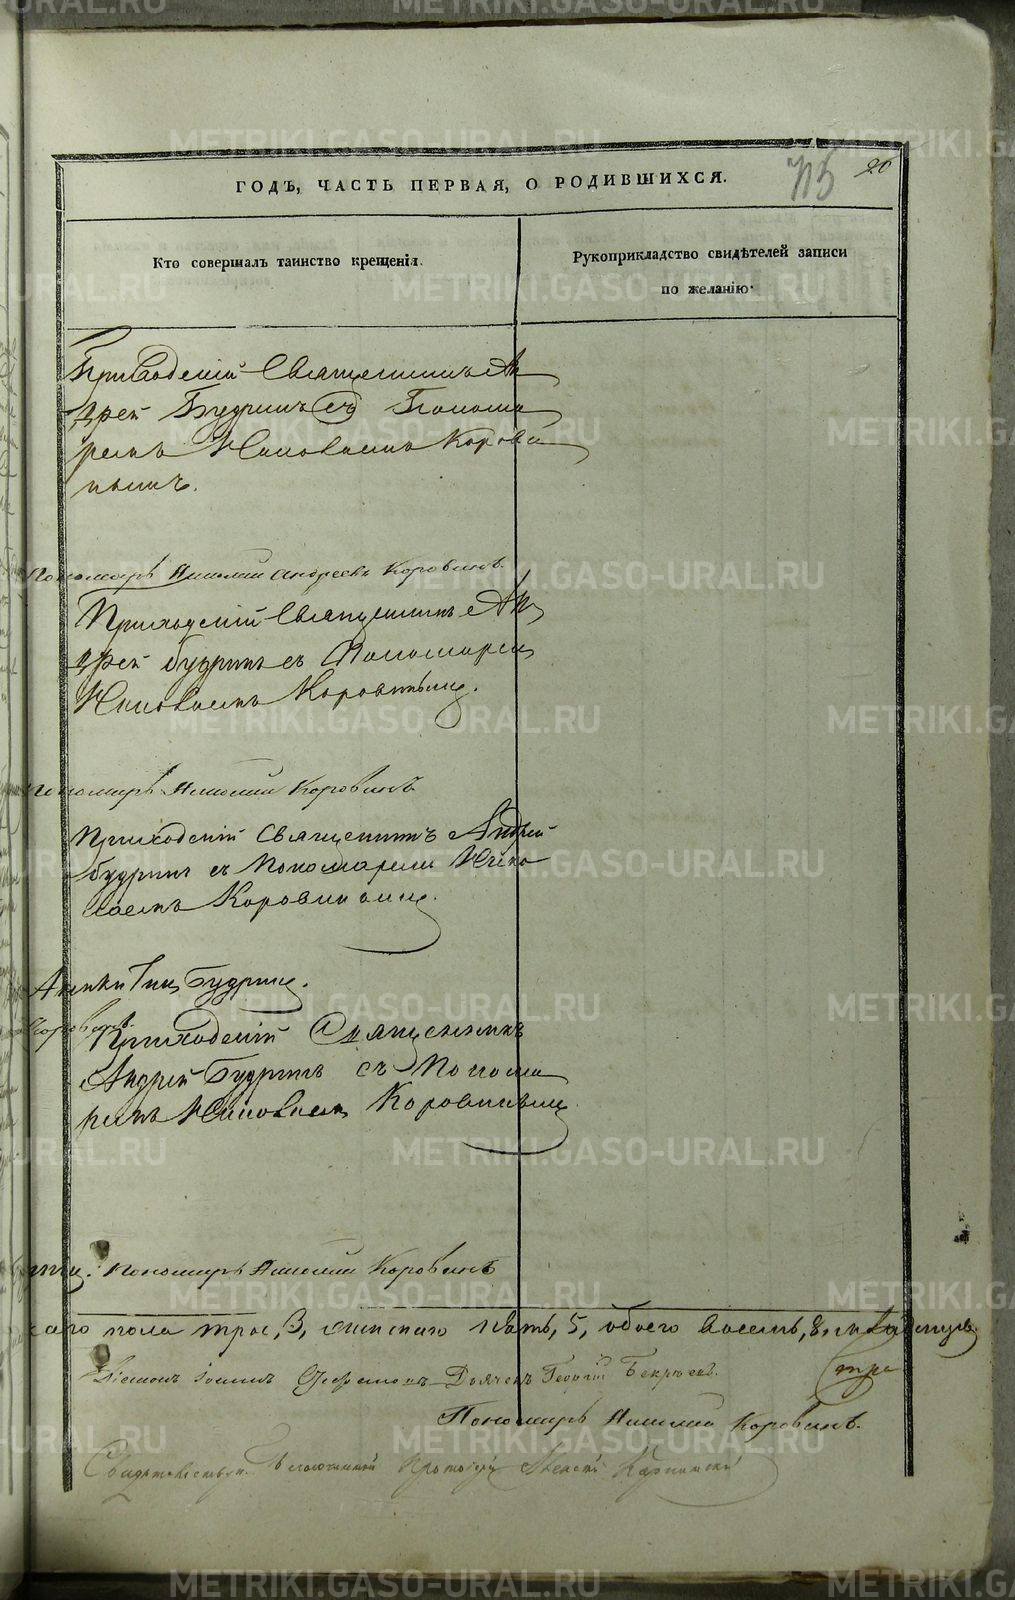 ГОДЪ, ЧАСТЬ ПЕРВАЯ, О РОДИВШИХСЯ.
20
Кто совершалъ таинство крещенія.
Рукоприкладство свидѣтелей записи
по желанію
Приходскій Священникъ Ан
дрей Будринъ съ Понома
ремъ Николаемъ Корови
нымъ.
Пономарь Николай Андреевъ Коровинъ.
Приходскій Священникъ Ан
дрей Будринъ съ Пономаремъ
Николаемъ Коровинымъ.
Пономарь Николай Коровинъ
Приходскій Священникъ Андрей
Будринъ съ Пономаремъ Нико
лаемъ Коровинымъ.
Будринъ.
Коровинъ.
Приходскій Священникъ
Андрей Будринъ съ Понома
ремъ Николаемъ Коровинымъ
Пономарь Николай Коровинъ
пола трое, 3, женскаго пять, 5, обоего восемь, 8,
Іоаннъ Дьячекъ Георгій
Пономарь Николай Коровинъ.
Свидѣтельствовалъ Благочинный Протоіерей
METRIKI.GASO-URAL.RU